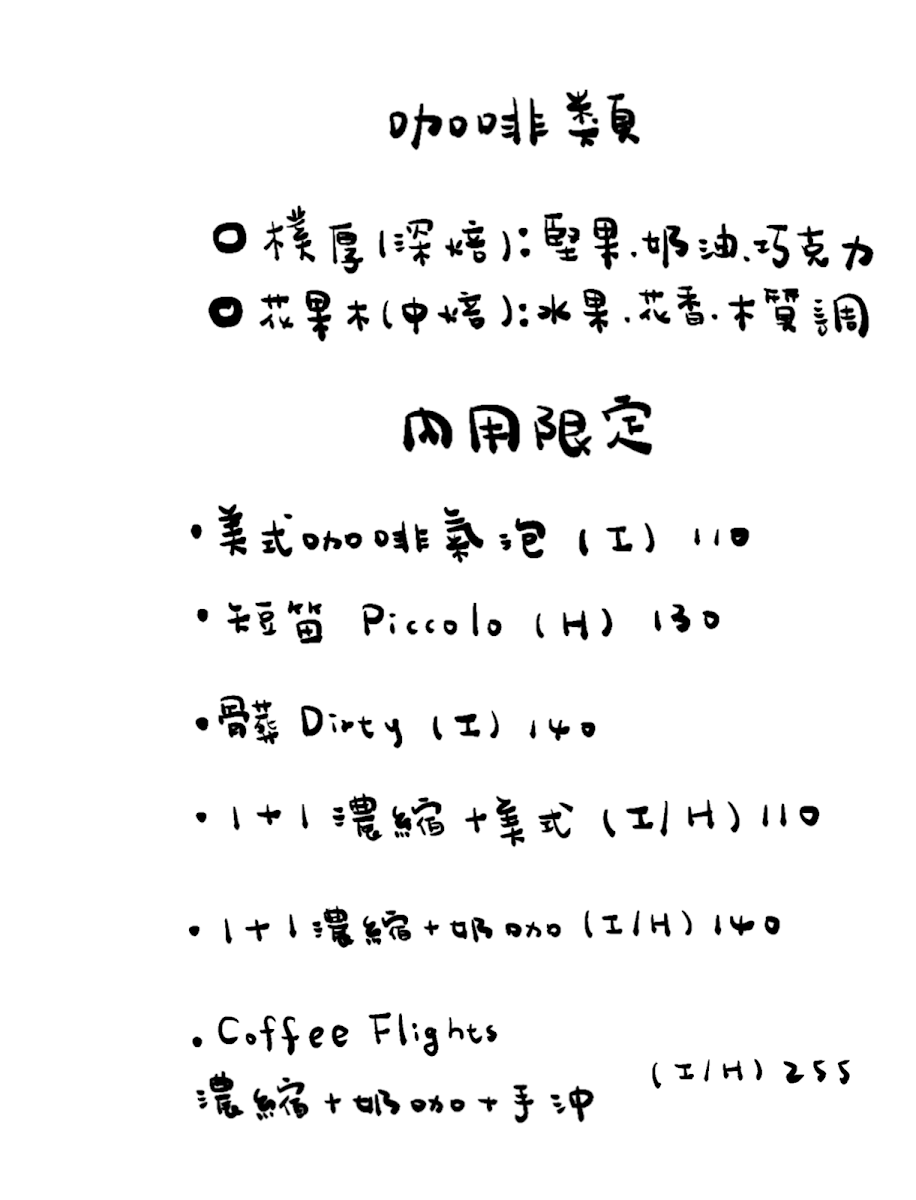 咖啡類
○ 樸厚(深焙):堅果.奶油.巧克力
○ 花果木(中焙):水果.花香.木質調
內用限定
・美式咖啡氣泡 (I) 110
・短笛 Piccolo (H) 130
・骨葬 Dirty (I) 140
・1+1 濃縮+美式 (I/H) 110
・1+1 濃縮+奶咖 (I/H) 140
・Coffee Flights
濃縮+奶咖+手沖 (I/H) 255